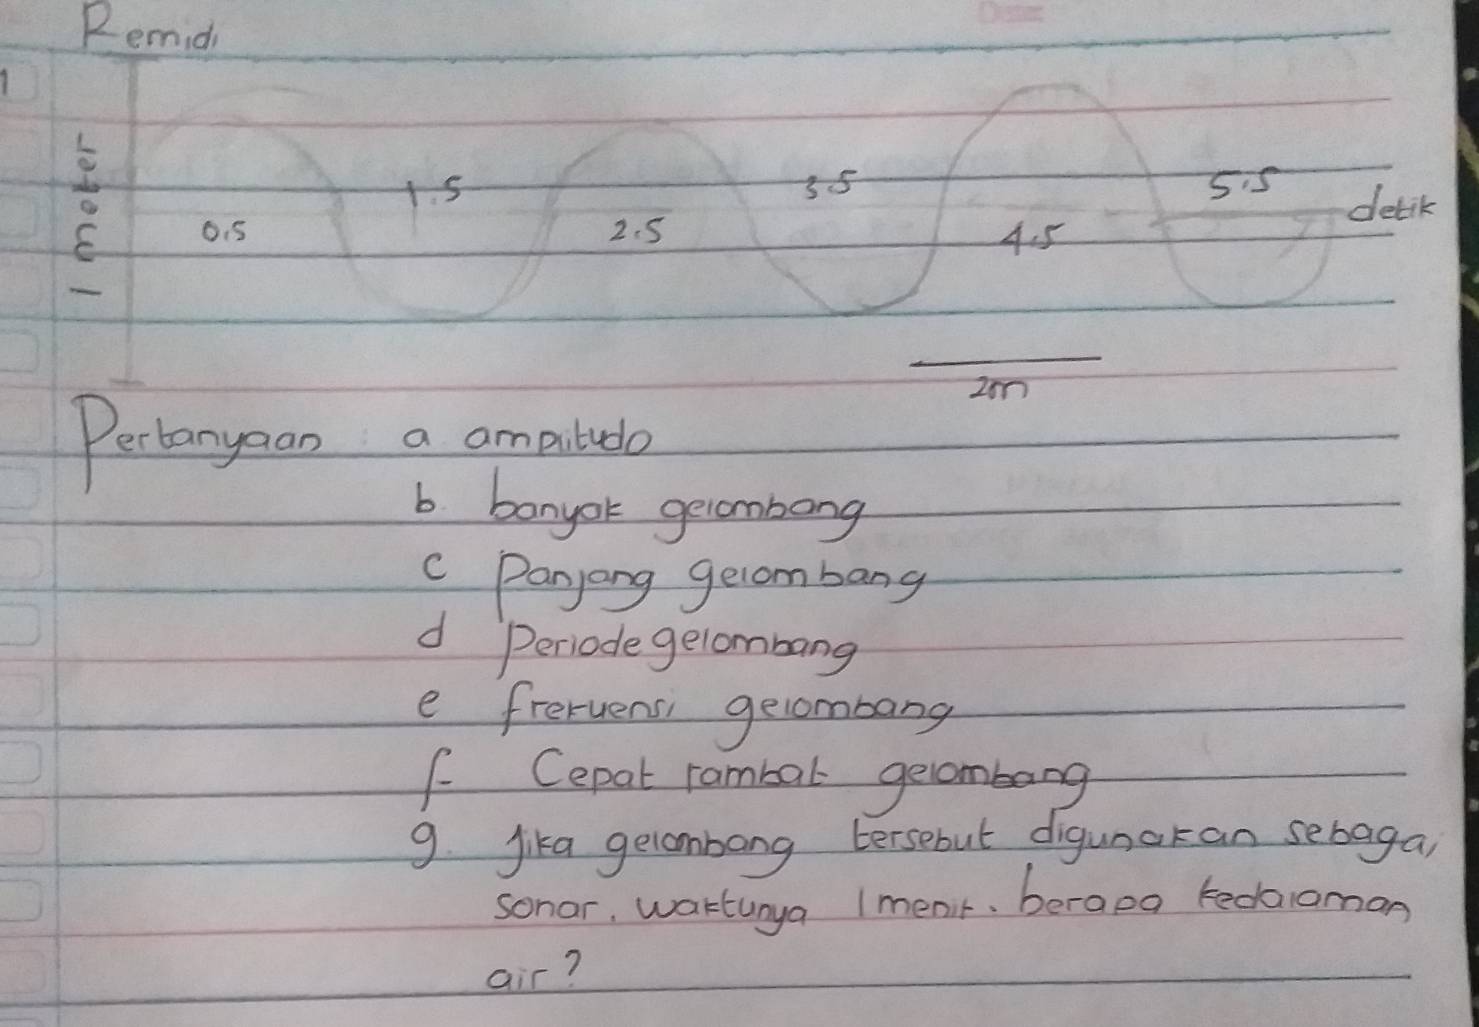 Remidi
1
1 meter
0.5 1.5 2.5 3.5 4.5 5.5 detik
2m
Pertanyaan : a ampitudo
b. banyak gelombang
c Panjang gelombang
d Periode gelombang
e frekuensi gelombang
f Cepat rambat gelombang
g. Jika gelombang tersebut digunakan sebagai
sonar, waktunya 1 menit. berapa kedalaman
air?